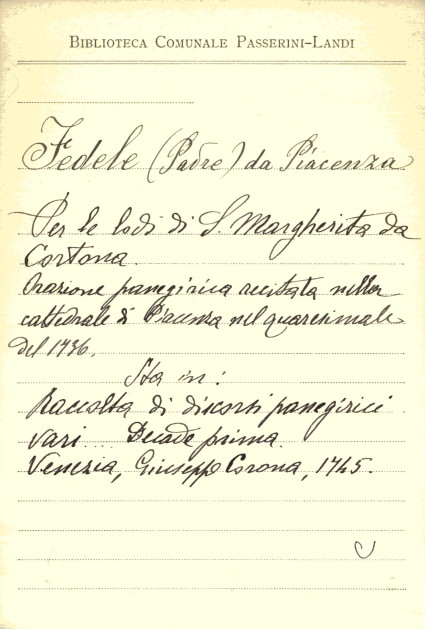 BIBLIOTECA COMUNALE PASSERINI-LANDI
Fedele (Padre) da Piacenza
Per le lodi di S. Margherita da
Cortona.
Orazione panegirica recitata nella
cattedrale di Piacenza nel quaresimale
del 1736.
Sta in:
Raccolta di discorsi panegirici
vari.... Decade prima.
Venezia, Giuseppe Corona, 1745.